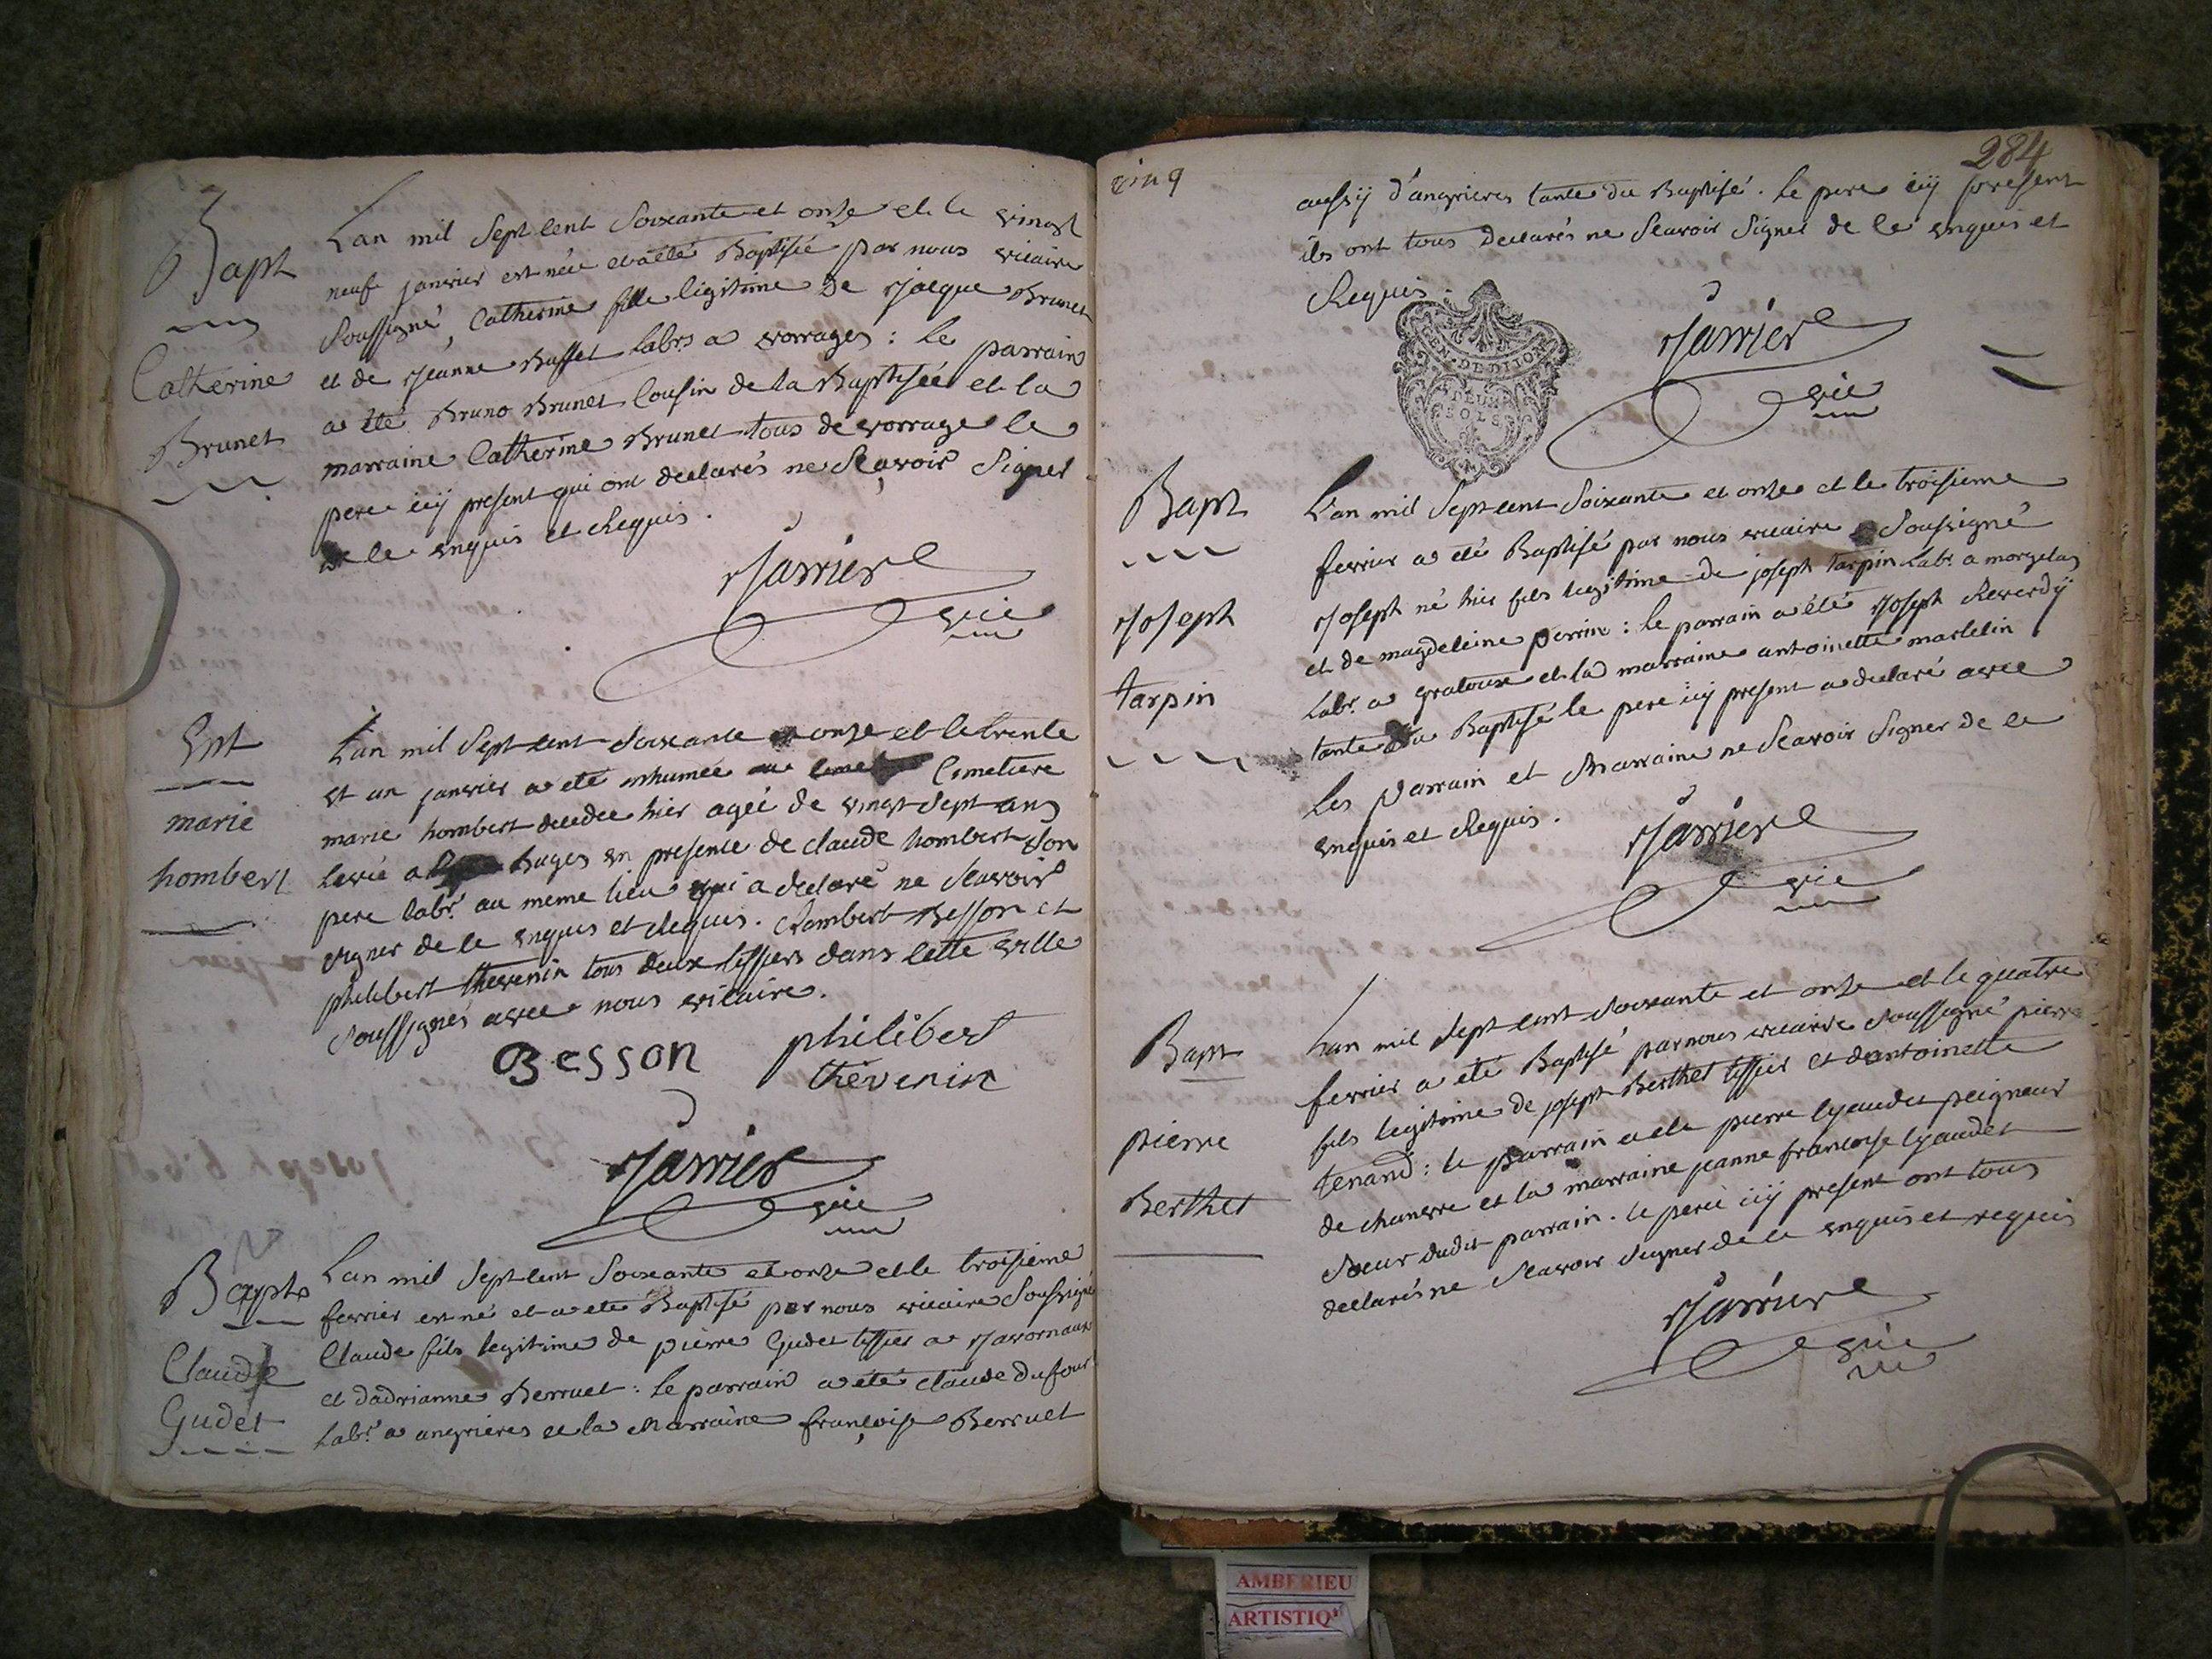 Bapt
Catherine
Brunet
Lan mil Sept cent Soixante et onze et le vingt
neufe janvier est née et a été Baptisée par nous vicaire
Soussigné, Catherine fille legitime de Jacque Brunet
et de Jeanne Buffet labrs a vorrages : le parrain
a été Bruno Brunet Cousin de la Baptisée et la
marraine Catherine Brunet tous de vorrage le
pere icy present qui ont declarés ne Sçavoir Signer
de ce enquis et Requis.
Jarriere
vic
Ent
marie
hombert
Lan mil Sept cent Soixante et onze et le trente
et un janvier a été inhumée au Cimetiere
marie hombert decedee hier agée de vingt Sept ans
levée a huges en presence de claude hombert Son
pere labr. au meme lieu qui a declaré ne Scavoir
Signer de ce enquis et Requis. Rambert Besson et
philibert thevenin tous deux tissiers dans cette ville
Soussignés avec nous vicaire.
Besson
philibert
thevenin
Jarriere
vic
Bapt
Claude
Gudet
Lan mil Sept cent Soixante et onze et le troisieme
fevrier est né et a ete Baptisé par nous vicaire Soussigné
Claude fils legitime de pierre Gudet tissier a Javornaux
et dadrianne Berruet : le parrain a été claude Dufour
Labr. a angrieres et la Marraine françoise Berruet
cinq
284
aussy d'angrieres tante du Baptisé. le pere icy present
ils ont tous Declarés ne Scavoir Signer de ce enquis et
Requis.
GEN. DE DIJON
DEUX
SOLS
Jarriere
vic
Bapt
Joseph
tarpin
Lan mil Sept cent Soixante et onze et le troisieme
fevrier a été Baptisé par nous vicaire Soussigné
Joseph né hier fils legitime de joseph tarpin Labr. a morgelas
et de magdeleine perrin : le parrain a été Joseph Reverdÿ
Labr. a gratoux et la marraine antoinette martelin
tante du Baptisé le pere icy present a declaré avec
Les parrain et Marraine ne Scavoir Signer de ce
enquis et Requis.
Jarriere
vic
Bapt
pierre
Berthet
Lan mil Sept cent Soixante et onze et le quatre
fevrier a été Baptisé par nous vicaire Soussigné pierre
fils legitime de joseph Berthet tissier et dantoinette
tenand : le parrain a ete pierre lyaudet peigneur
de chanvre et la marraine jeanne francoise lyaudet
Soeur dudit parrain. le pere icy present ont tous
declarés ne Scavoir Signer de ce enquis et requis
Jarriere
vic
AMBERIEU
ARTISTIQ